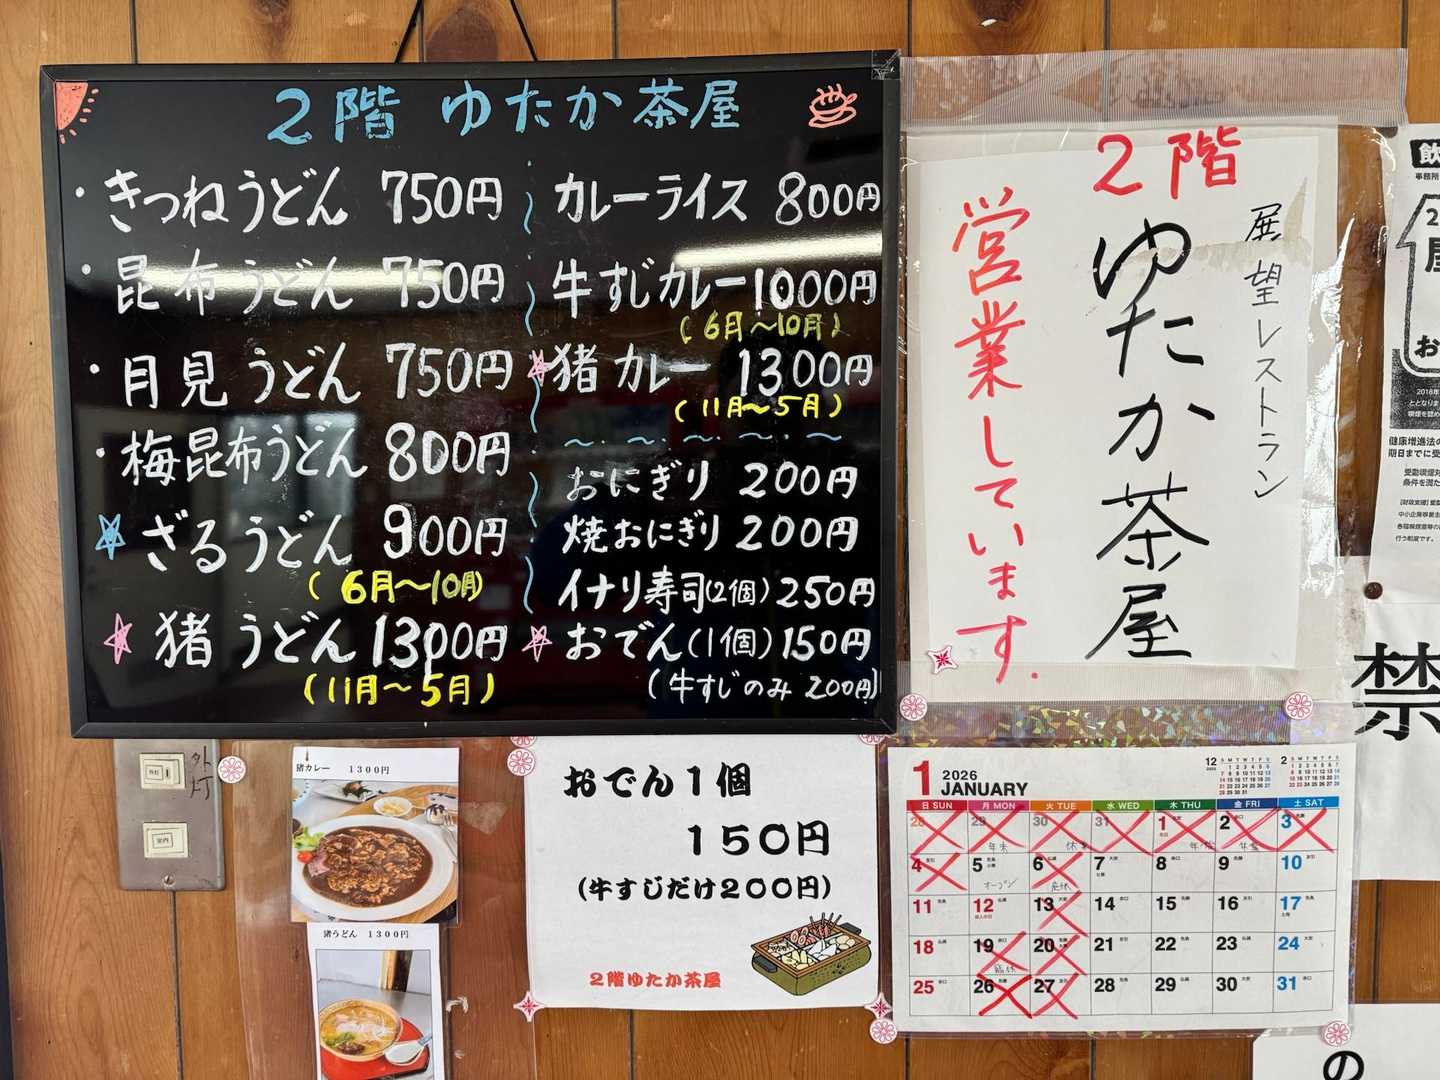 2階 ゆたか茶屋
・きつねうどん 750円
・昆布うどん 750円
・月見うどん 750円
・梅昆布うどん 800円
☆ざるうどん 900円
(6月〜10月)
☆猪うどん 1300円
(11月〜5月)
カレーライス 800円
牛すじカレー 1000円
(6月〜10月)
☆猪カレー 1300円
(11月〜5月)
おにぎり 200円
焼おにぎり 200円
イナリ寿司(2個) 250円
☆おでん(1個) 150円
(牛すじのみ 200円)
2階
展望レストラン
ゆたか茶屋
営業しています.
外灯
室内
猪カレー 1300円
猪うどん 1300円
おでん1個
150円
(牛すじだけ200円)
2階ゆたか茶屋
1 2026 JANUARY
12 2
日 SUN 月 MON 火 TUE 水 WED 木 THU 金 FRI 土 SAT
28 29 30 31 1 2 3
年末
4 5 6 7 8 9 10
オープン
11 12 13 14 15 16 17
18 19 20 21 22 23 24
臨休
25 26 27 28 29 30 31
飲
事務所
お
健康増進法の
期日までに受
条件を満た
行う制度です。
禁
の